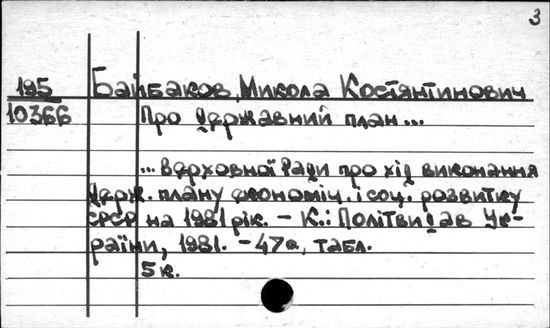 3
195 Байбаков, Микола Костянтинович
10366 Про державний план...
...Верховної Ради про хід виконання
держ. плану економіч. і соц. розвитку
СРСР на 1981 рік. – К.: Політвидав Ук-
раїни, 1981. – 47с., табл.
5к.